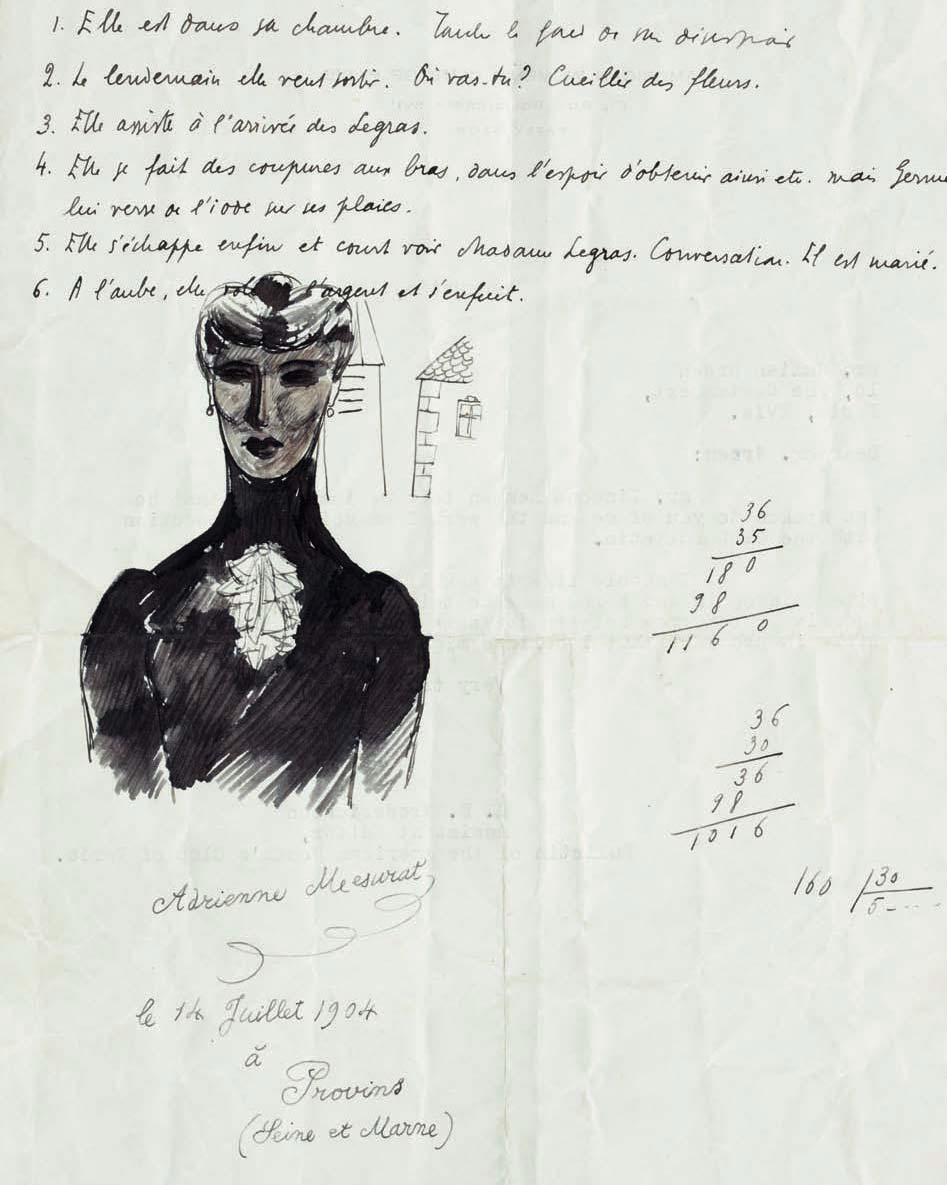 1. Elle est dans sa chambre.
2. Le lendemain elle veut sortir. Où vas-tu? Cueillir des fleurs.
3. Elle assiste à l'arrivée des Legras.
4. Elle se fait des coupures aux bras, dans l'espoir d'obtenir ainsi etc. mais Germa
lui verse de l'iode sur ses plaies.
5. Elle s'échappe enfin et court voir Madame Legras. Conversation. Il est marié.
6. A l'aube, elle vole l'argent et s'enfuit.
36
35
180
98
1160
36
30
36
98
1016
160 30
5----
Adrienne Mesurat
le 14 Juillet 1904
à
Provins
(Seine et Marne)